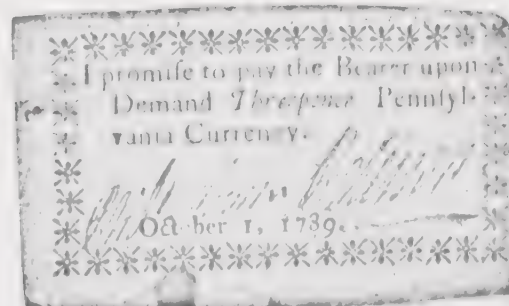 I promiſe to pay the Bearer upon
Demand Threepence Pennſyl-
vania Curren y.
Oct ber 1, 1789.